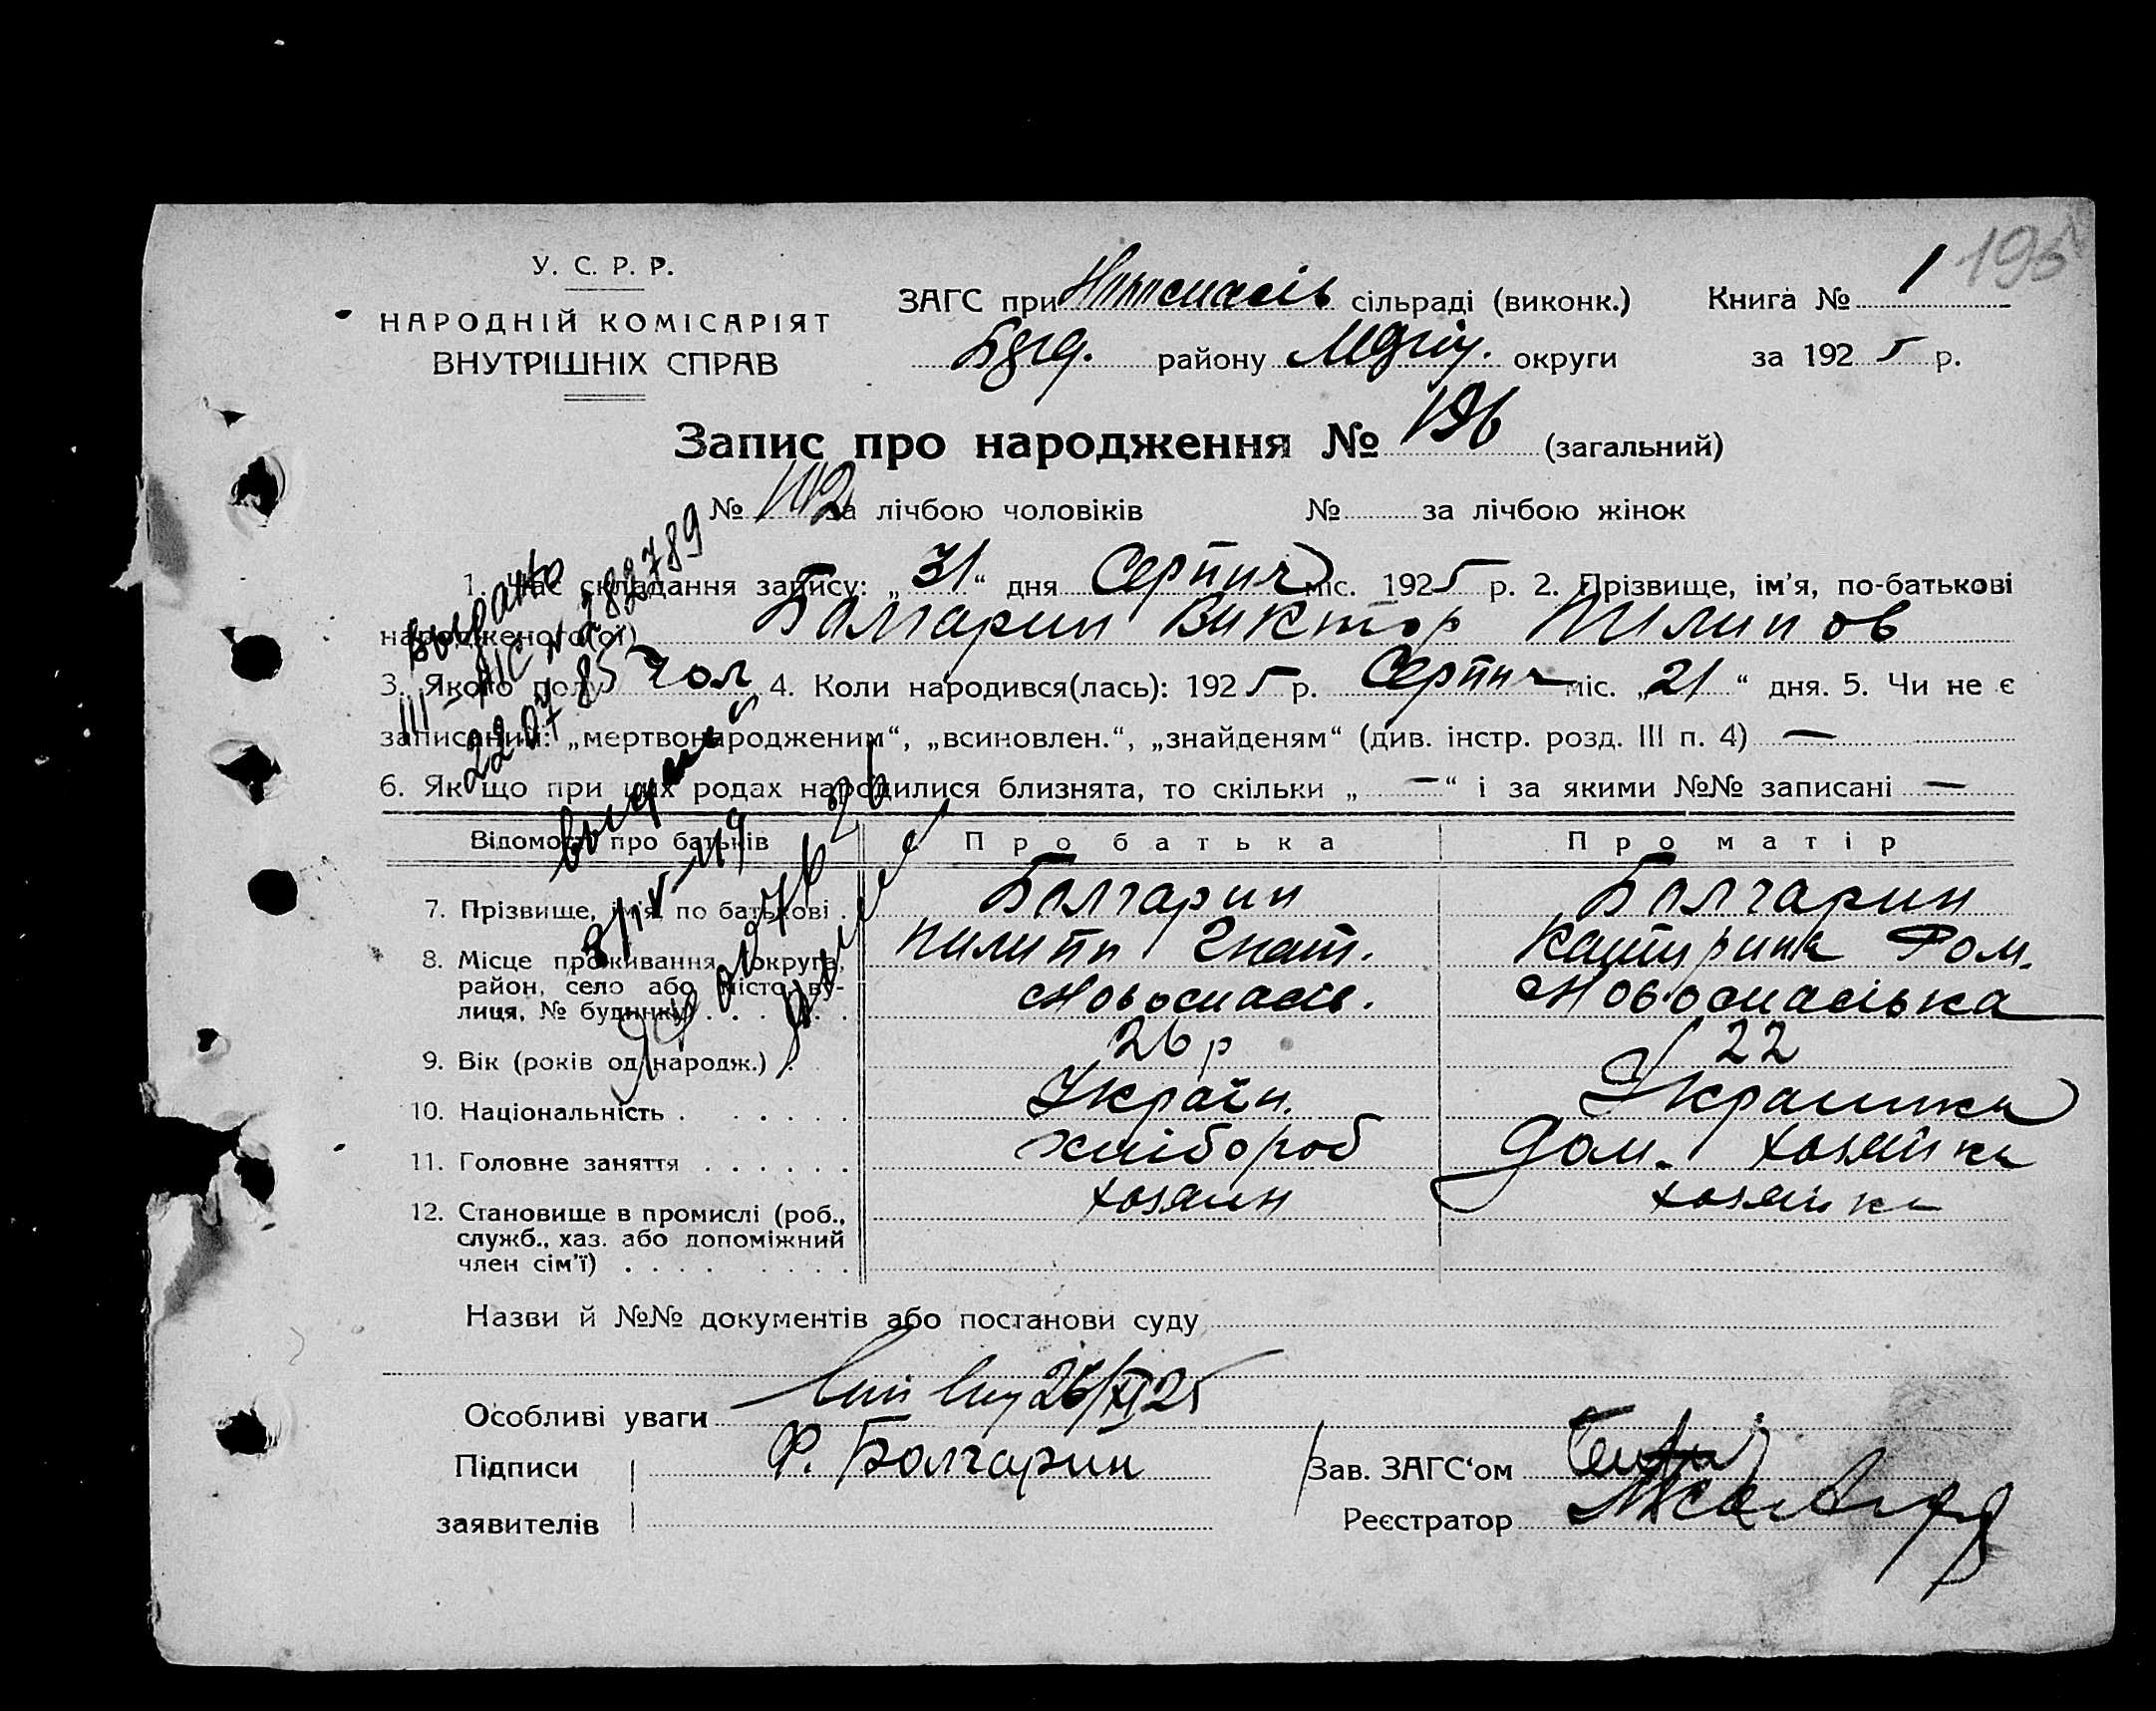 У. С. Р. Р.
НАРОДНІЙ КОМІСАРІЯТ
ВНУТРІШНІХ СПРАВ
ЗАГС при сільраді (виконк.)
району округи
Книга № 1
за 1925 р.
Запис про народження № 196 (загальний)
№ 112 за лічбою чоловіків № за лічбою жінок
1. Час складання запису: „31“ дня Серпня міс. 1925 р. 2. Прізвище, ім’я, по-батькові
народженого(ої) Болгарин Виктор Пилипов
3. Якого полу чол 4. Коли народився(лась): 1925 р. Серпня міс. „21“ дня. 5. Чи не є
записаним: „мертвонародженим“, „всиновлен.“, „знайденям“ (див. інстр. розд. III п. 4) —
6. Якщо при цих родах народилися близнята, то скільки „—“ і за якими №№ записані —
Відомості про батьків Про батька Про матір
7. Прізвище, ім’я, по батькові . Болгарин Болгарин
Пилип Гнат. Катерина Ром.
8. Місце проживання (округа,
район, село або місто, ву-
лиця, № будинку) . . . . . . Новоспасів. Новоспасівка
9. Вік (років од народж.) . 26 р 22
10. Національність . . . . . . Україн. Украинка
11. Головне заняття . . . . . . хлібороб дом. хозяйка
12. Становище в промислі (роб.,
служб., хаз. або допоміжний
член сім’ї) . . . . . . . . хозяин хозяйка
Назви й №№ документів або постанови суду
Особливі уваги 26/XI 25
Підписи Ф. Болгарин
заявителів
Зав. ЗАГС‘ом
Реєстратор
Выдано
III-ЖС № 2882789
22 07 85